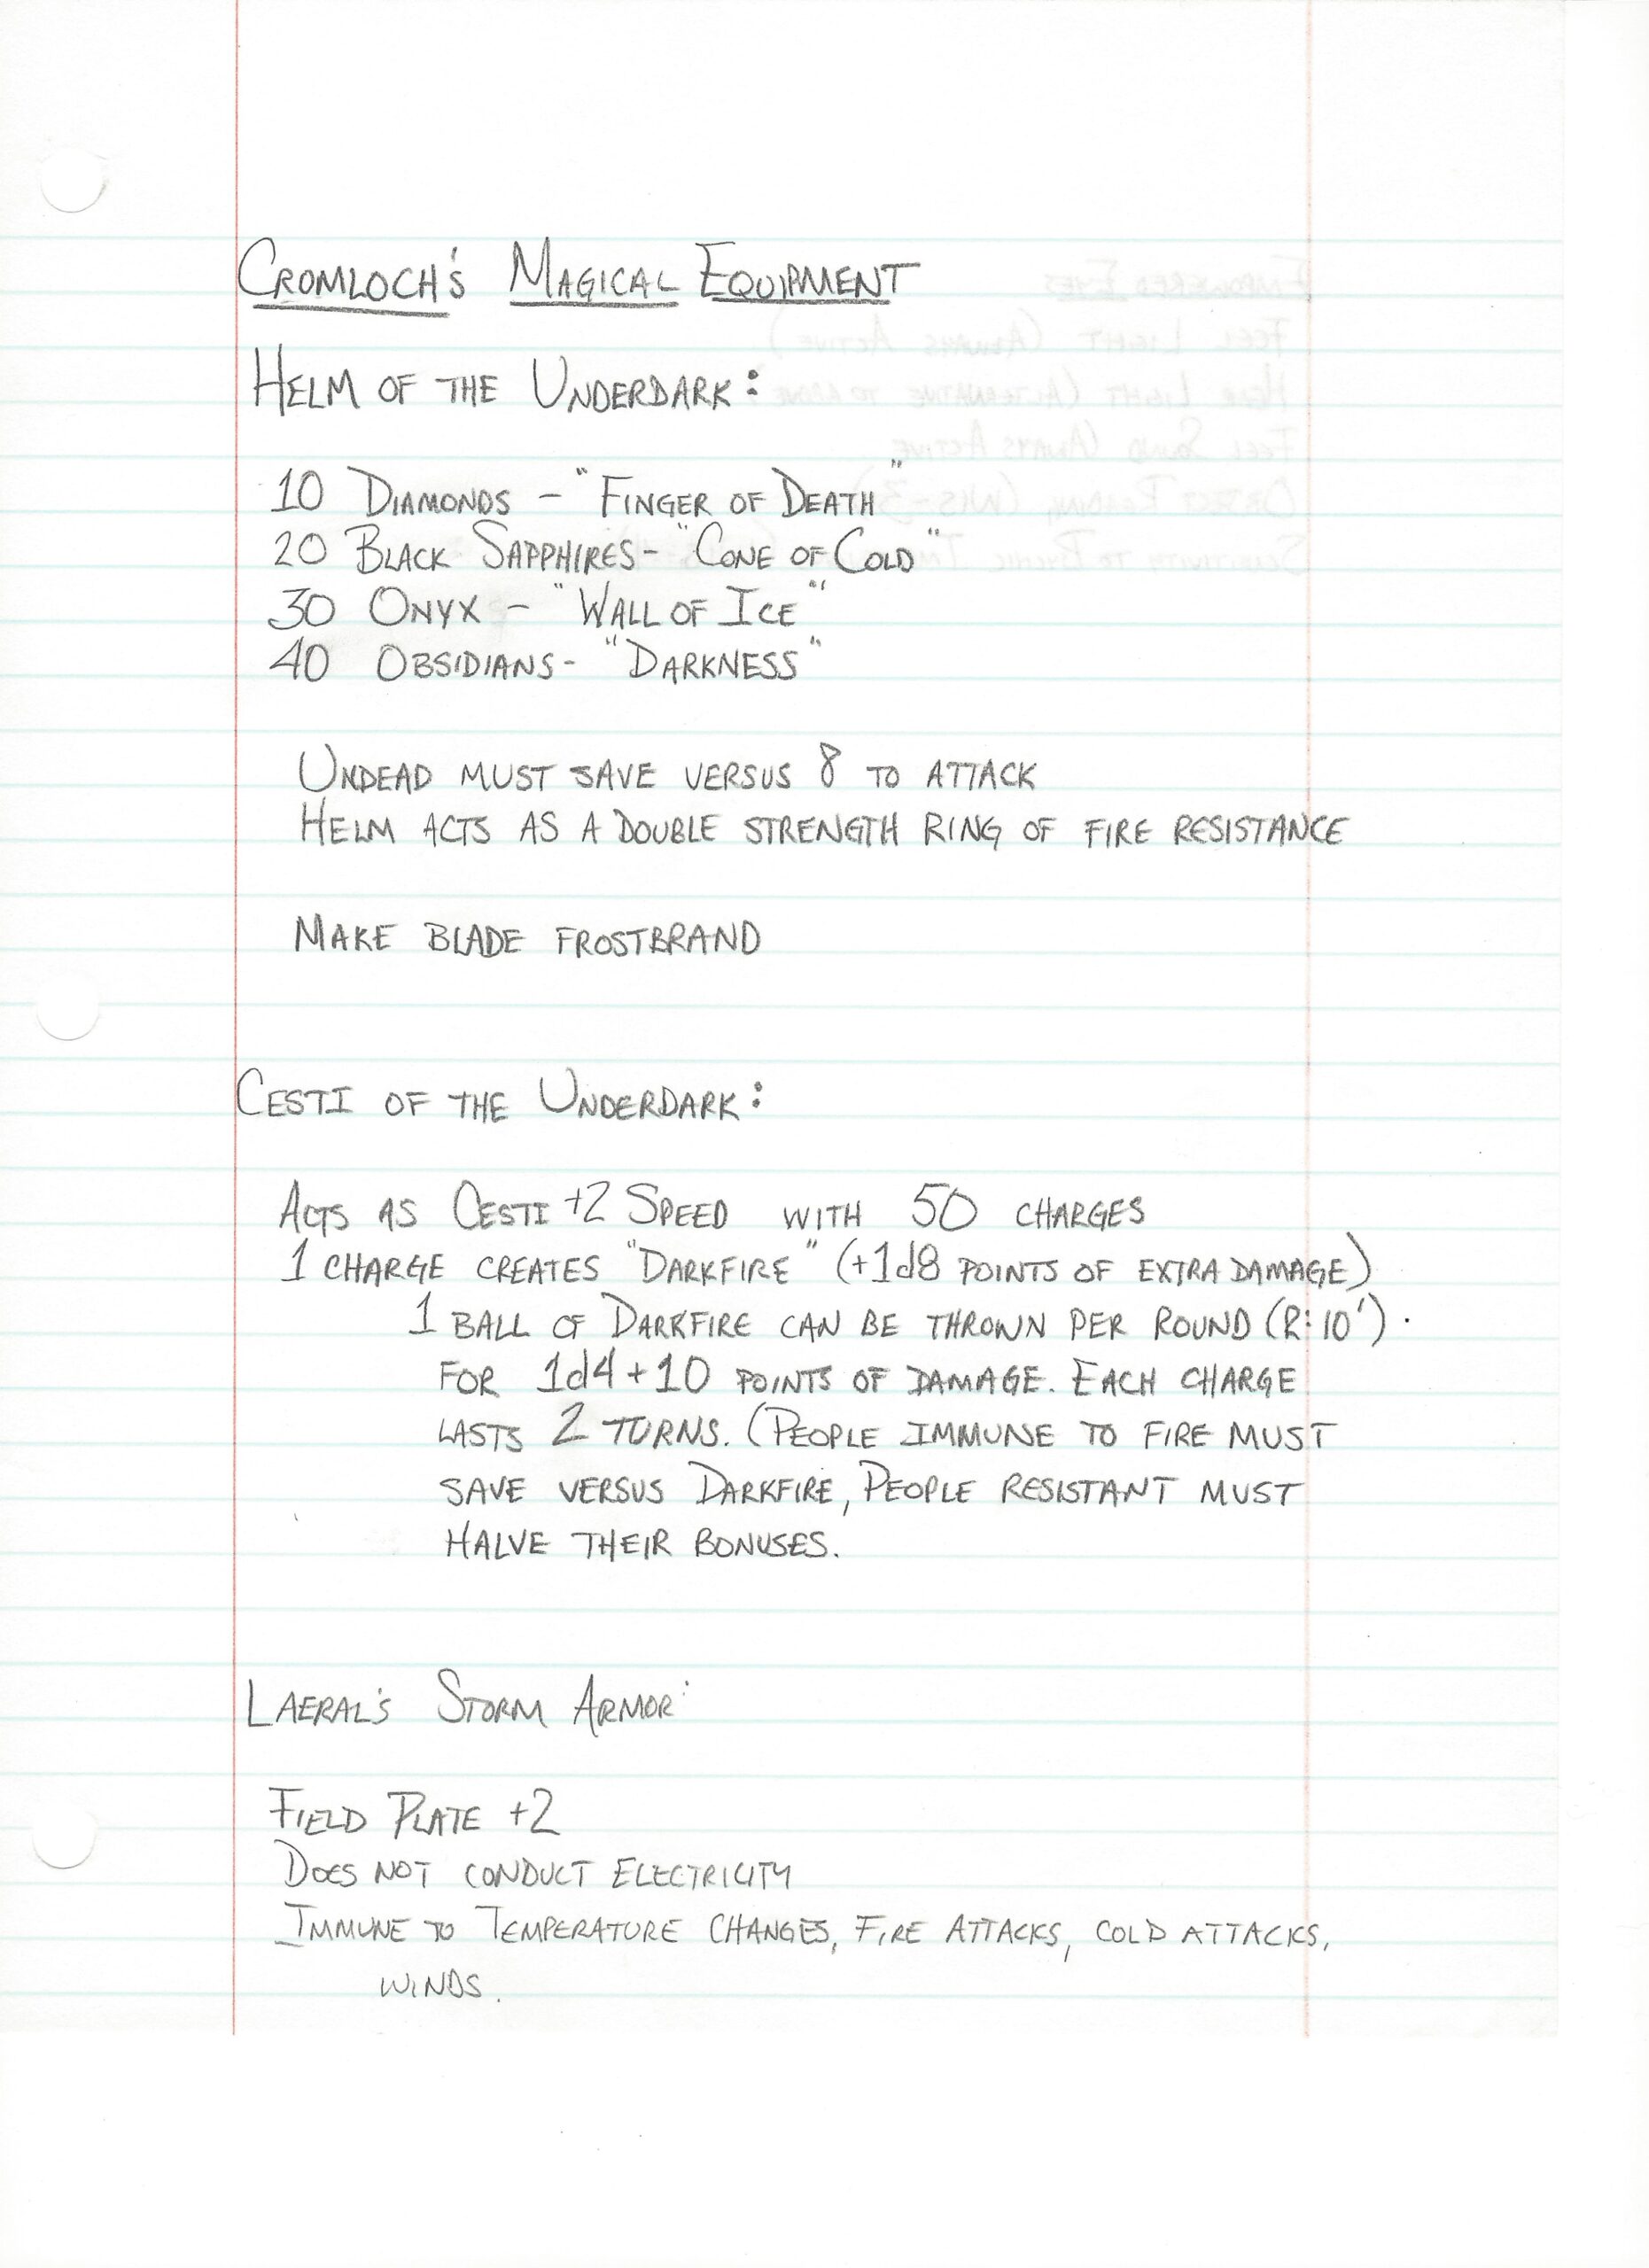 CROMLOCH'S MAGICAL EQUIPMENT
HELM OF THE UNDERDARK:
10 DIAMONDS - "FINGER OF DEATH"
20 BLACK SAPPHIRES - "CONE OF COLD"
30 ONYX - "WALL OF ICE"
40 OBSIDIANS - "DARKNESS"
UNDEAD MUST SAVE VERSUS 8 TO ATTACK
HELM ACTS AS A DOUBLE STRENGTH RING OF FIRE RESISTANCE
MAKE BLADE FROSTBRAND
CESTI OF THE UNDERDARK:
ACTS AS CESTI +2 SPEED WITH 50 CHARGES
1 CHARGE CREATES "DARKFIRE" (+1d8 POINTS OF EXTRA DAMAGE)
1 BALL OF DARKFIRE CAN BE THROWN PER ROUND (R: 10').
FOR 1d4+10 POINTS OF DAMAGE. EACH CHARGE
LASTS 2 TURNS. (PEOPLE IMMUNE TO FIRE MUST
SAVE VERSUS DARKFIRE, PEOPLE RESISTANT MUST
HALVE THEIR BONUSES.
LAERAL'S STORM ARMOR:
FIELD PLATE +2
DOES NOT CONDUCT ELECTRICITY
IMMUNE TO TEMPERATURE CHANGES, FIRE ATTACKS, COLD ATTACKS,
WINDS.
EMPOWERED EYES
FEEL LIGHT (ALWAYS ACTIVE)
HEAR LIGHT (ALTERNATIVE TO ABOVE)
FEEL SOUND (ALWAYS ACTIVE
OBJECT READING (WIS-3)
SENSITIVITY TO PSYCHIC